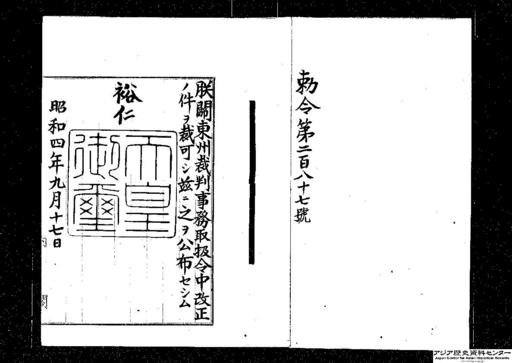 勅令第二百八十七號
朕關東州裁判事務取扱令中改正
ノ件ヲ裁可シ茲ニ之ヲ公布セシム
裕仁
天皇
御璽
昭和四年九月十七日
内閣
アジア歴史資料センター
Japan Center for Asian Historical Records